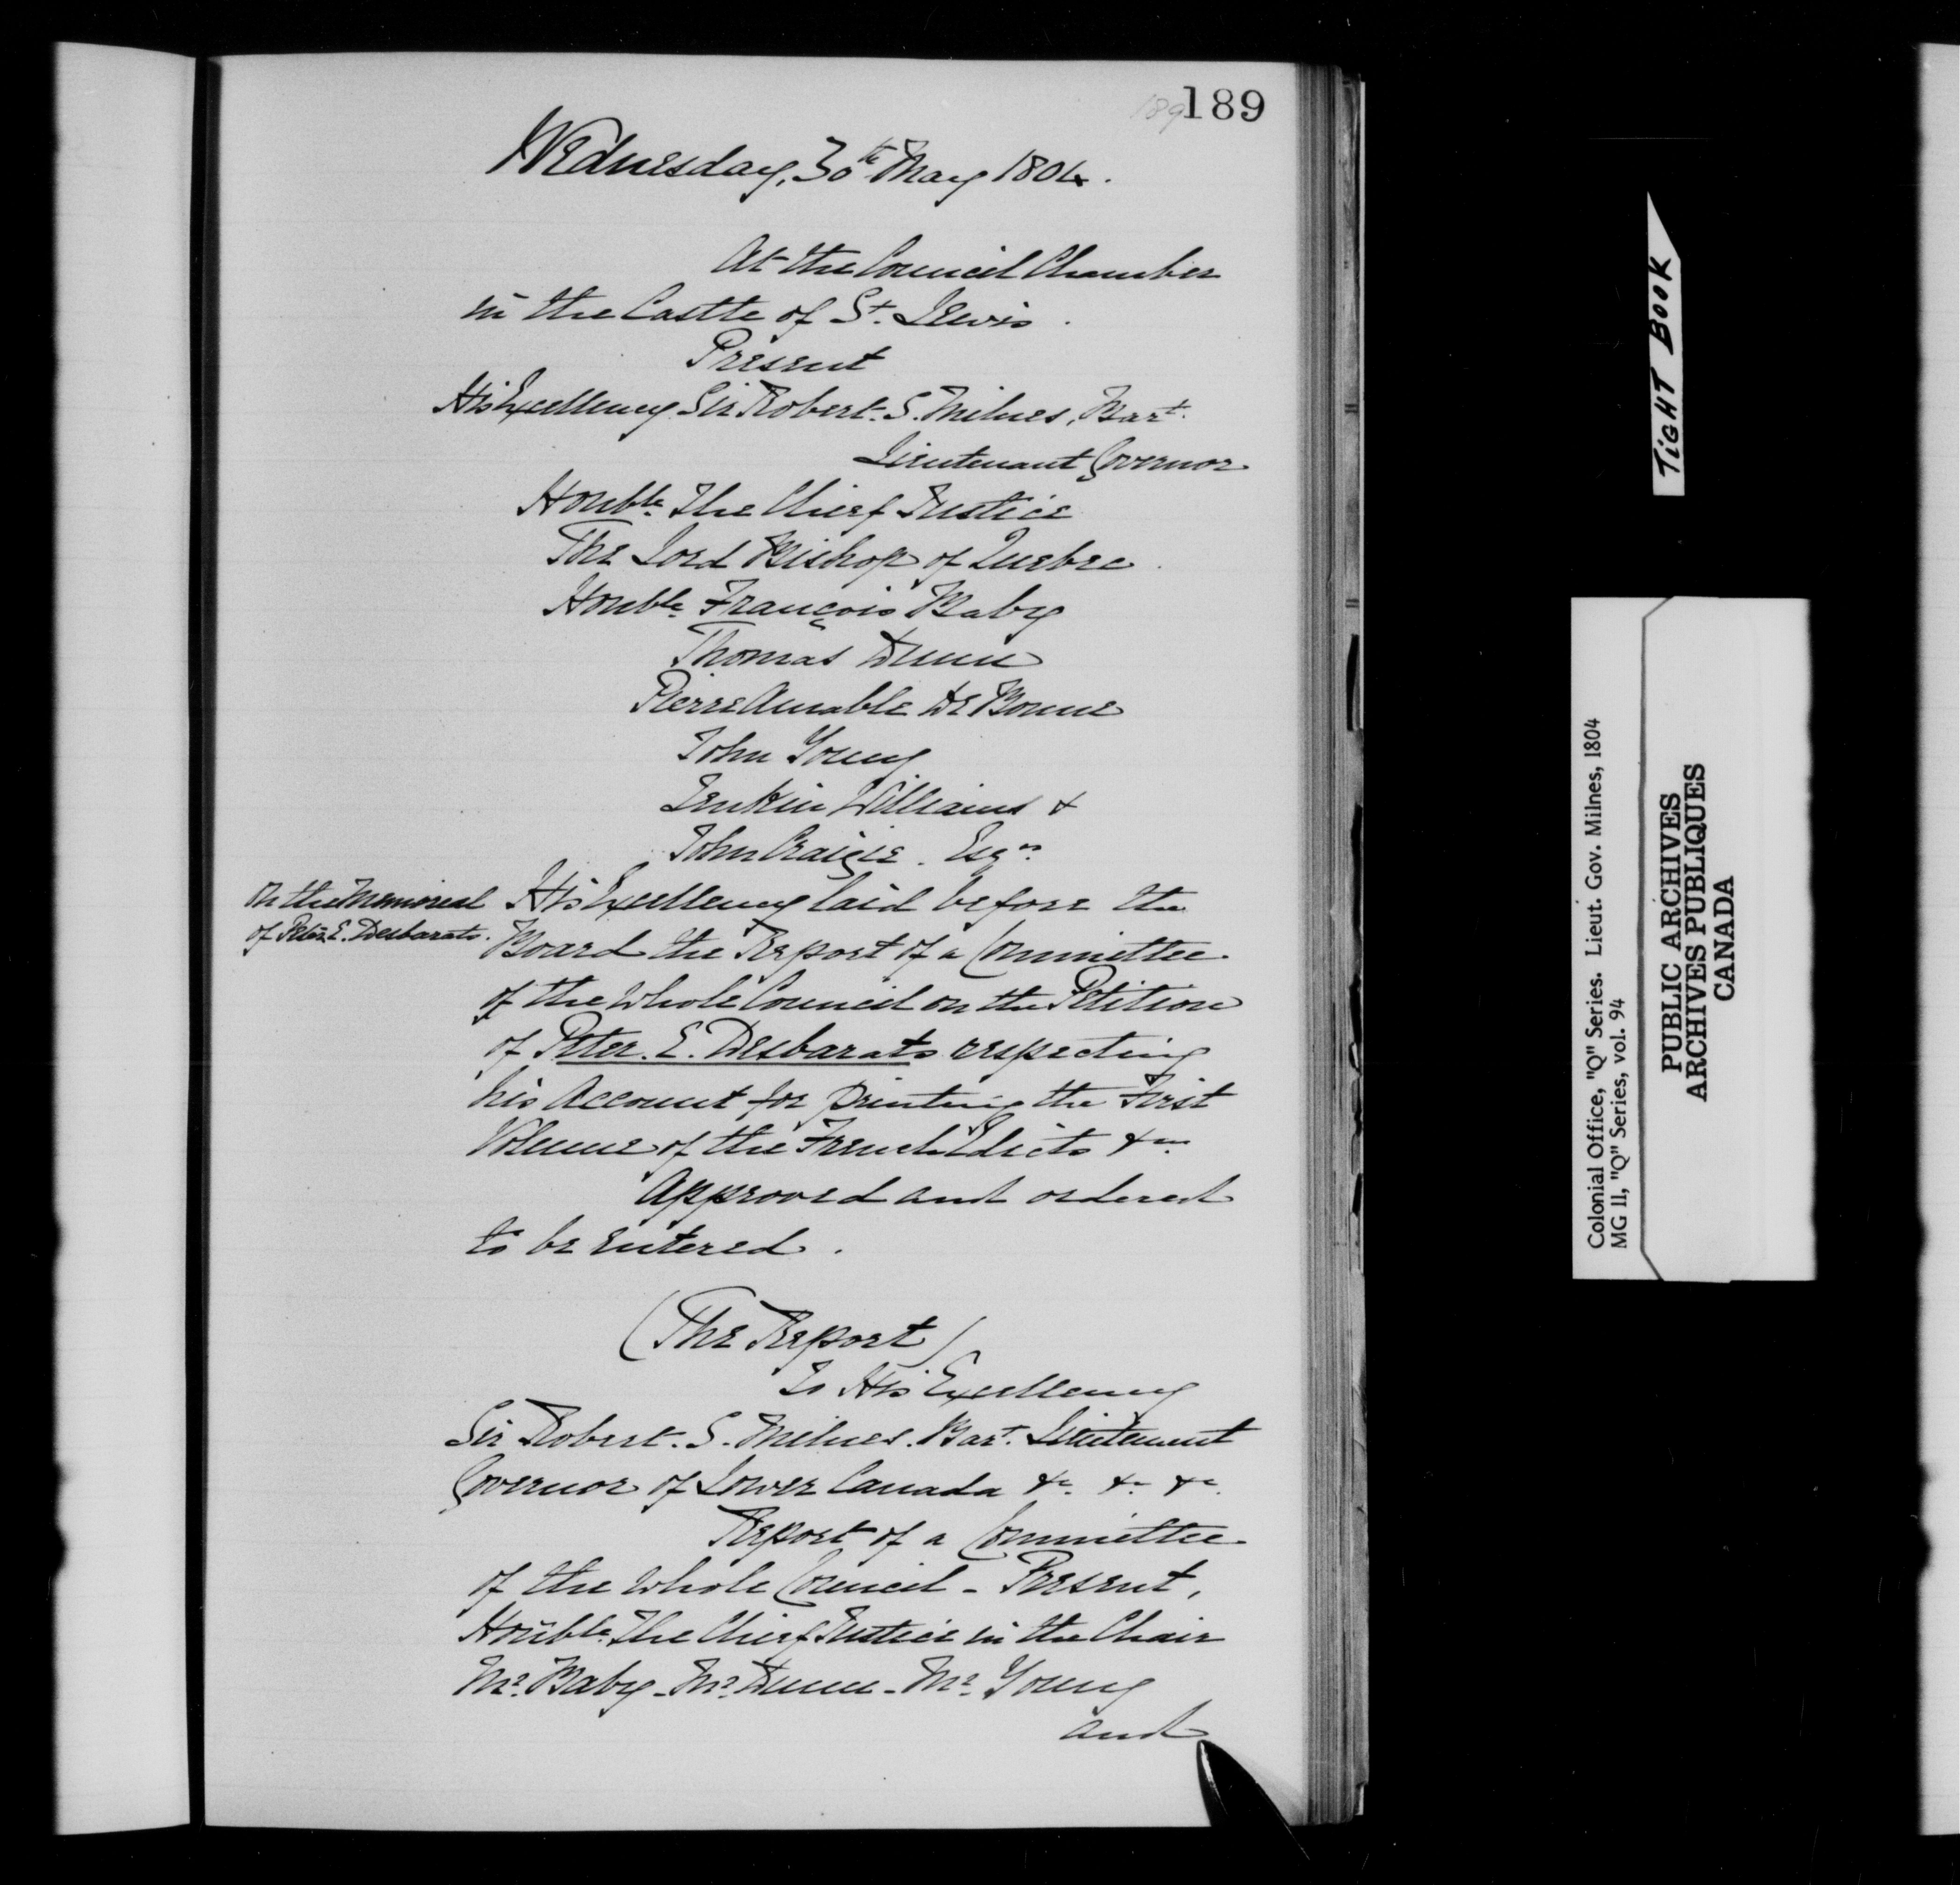 189 189
Wednesday, 30th May 1804.
At the Council Chamber
in the Castle of St. Lewis.
Present
His Excellency Sir Robert. S. Milnes, Bart.
Lieutenant Governor
Honble. The Chief Justice
The Lord Bishop of Quebec.
Honble. François Baby
Thomas Dunn
Pierre Amable De Bonne
John Young
Jenkin Williams &
John Craigie. Esqrs.
On the Memorial
of Peter E. Desbarats.
His Excellency laid before the
Board the Report of a Committee
of the Whole Council on the Petition
of Peter. E. Desbarats respecting
his Account for printing the First
Volume of the French Edicts &ca.
Approved and ordered
to be entered.
(The Report)
To His Excellency
Sir Robert. S. Milnes. Bart. Lieutenant
Governor of Lower Canada &c. &c. &c.
Report of a Committee
of the whole Council - Present,
Honble. The Chief Justice in the Chair
Mr. Baby - Mr. Dunn - Mr. Young
and
TIGHT BOOK
Colonial Office, "Q" Series. Lieut. Gov. Milnes, 1804
MG 11, "Q" Series, vol. 94
PUBLIC ARCHIVES
ARCHIVES PUBLIQUES
CANADA